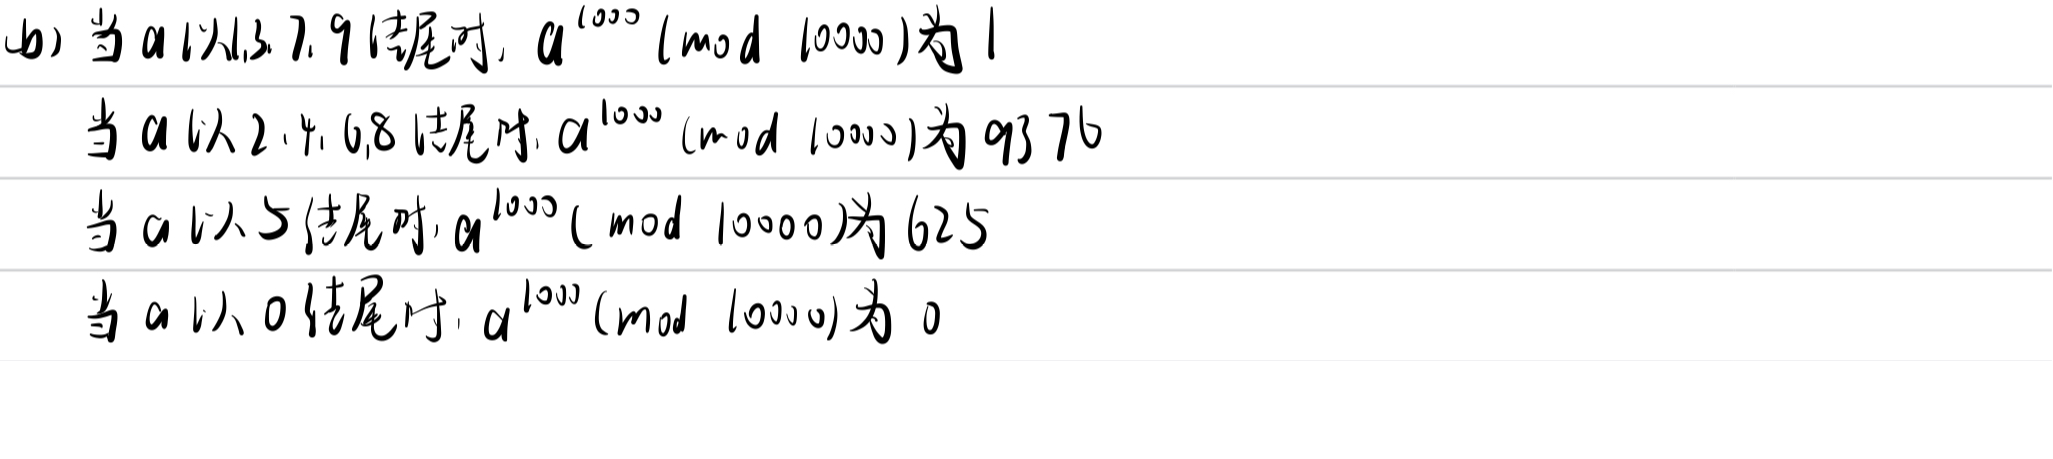 (b) 当a以1.3.7.9结尾时, a^1000 (mod 10000)为1
当a以2.4.6.8结尾时, a^1000 (mod 10000)为9376
当a以5结尾时, a^1000 (mod 10000)为625
当a以0结尾时, a^1000 (mod 10000)为0